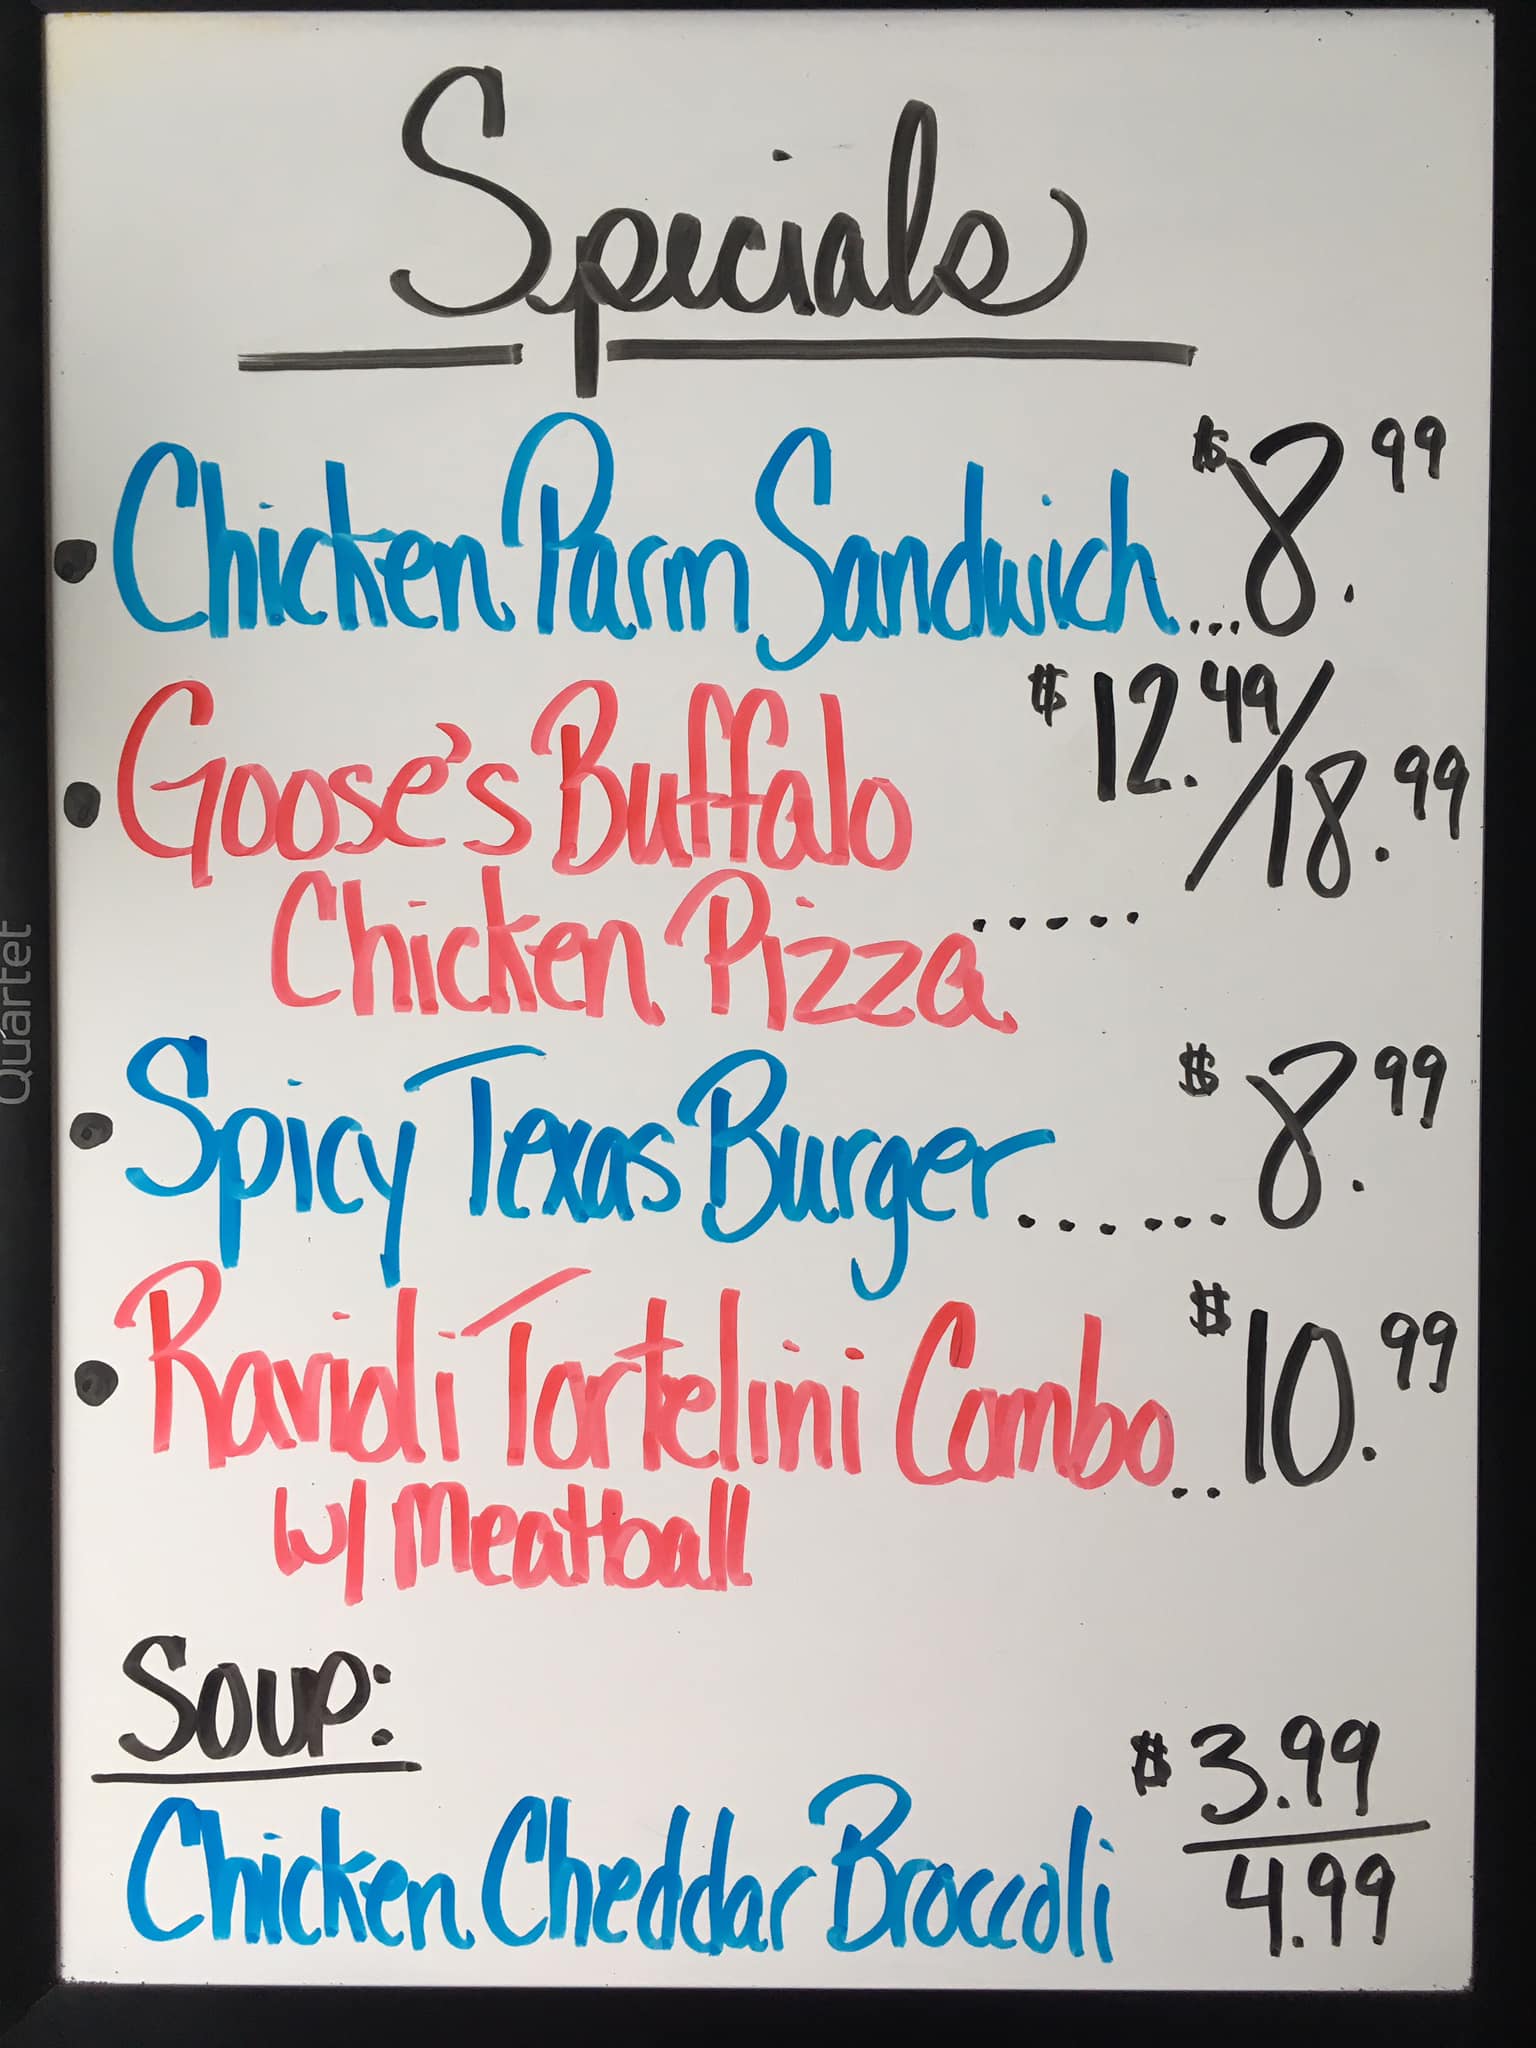 Specials
• Chicken Parm Sandwich...$8.99
• Goose's Buffalo $12.49/18.99
Chicken Pizza.....
• Spicy Texas Burger......$8.99
• Ravioli Tortelini Combo..$10.99
w/ Meatball
Soup:
Chicken Cheddar Broccoli $3.99
4.99
Quartet